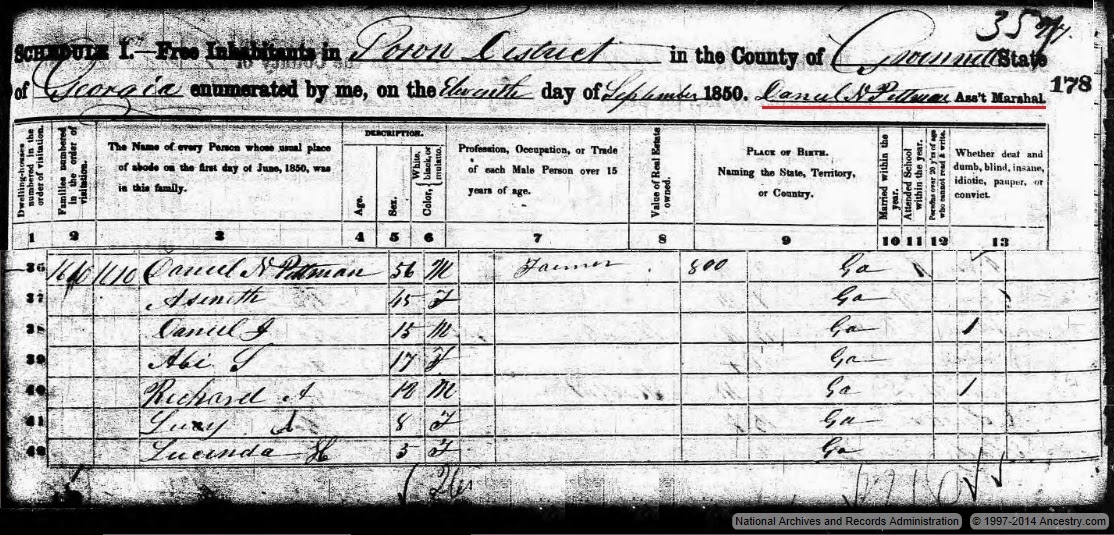 357
SCHEDULE I.—Free Inhabitants in Town District in the County of Gwinnett State
of Georgia enumerated by me, on the Eleventh day of September 1850. Daniel N Pittman Ass't Marshal. 178
Dwelling-houses numbered in the order of visitation.
Families numbered in the order of visitation.
The Name of every Person whose usual place of abode on the first day of June, 1850, was in this family.
DESCRIPTION.
Age.
Sex.
Color, { White, black, or mulatto.
Profession, Occupation, or Trade of each Male Person over 15 years of age.
Value of Real Estate owned.
PLACE OF BIRTH. Naming the State, Territory, or Country.
Married within the year.
Attended School within the year.
Persons over 20 y'rs of age who cannot read & write.
Whether deaf and dumb, blind, insane, idiotic, pauper, or convict.
1 2 3 4 5 6 7 8 9 10 11 12 13
36 1610 1610 Daniel N Pittman 56 M Farmer 800 Ga
37 Asenith 45 F Ga
38 Daniel J 15 M Ga 1
39 Abi S 17 F Ga
40 Richard A 12 M Ga 1
41 Lucy A 8 F Ga
42 Lucinda H 5 F Ga
National Archives and Records Administration © 1997-2014 Ancestry.com